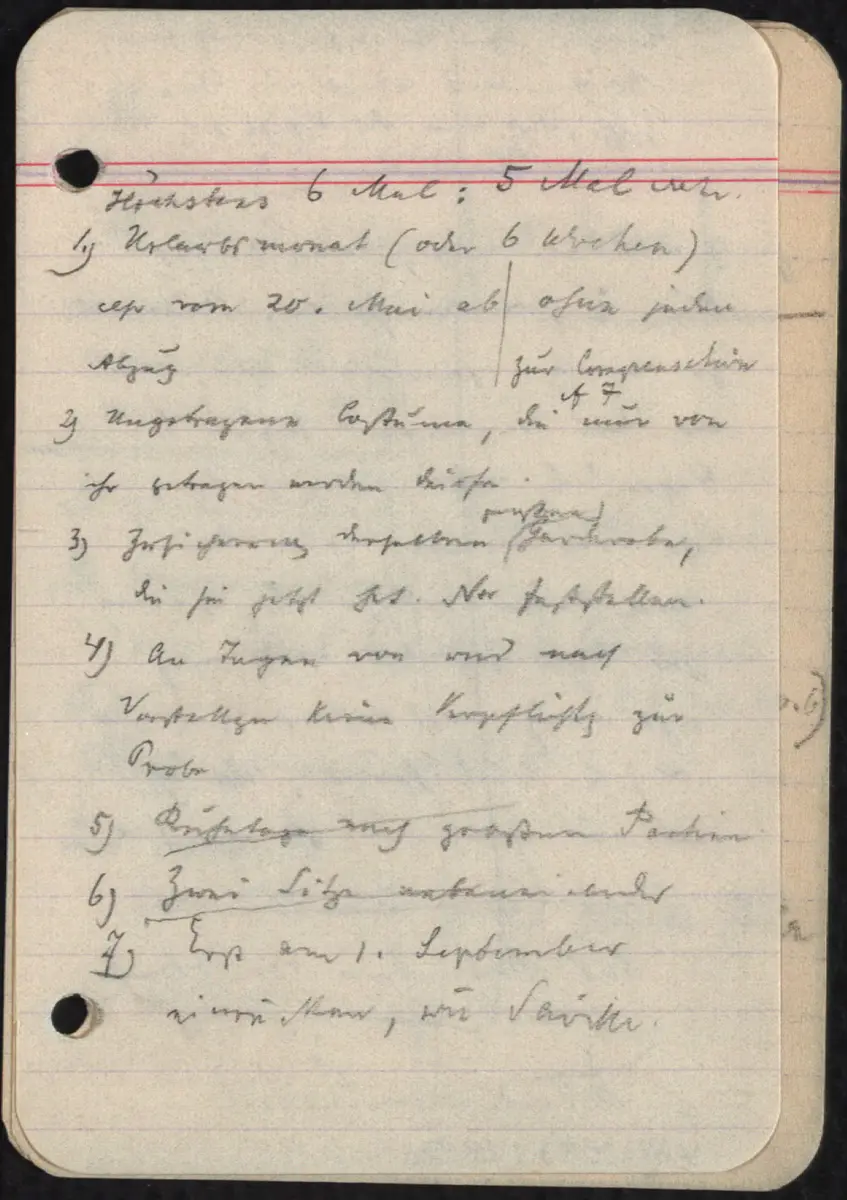 Höchstens 6 Mal : 5 Mal
1.) Urlaubsmonat (oder 6 Wochen)
also vom 20. Mai ab | ohne jeden
Abzug zur Compensation
cf 7
2) Ungetragene Costüme, die nur von
ihr getragen werden dürfen.
3) Zusicherung derselben Garderobe,
die sie jetzt hat. No feststellen.
4) An Tagen von und nach
Vorstellgen keine Verpflichtg zur
Probe
5) Ruhetage nach großen Partien
6) Zwei Sitze nebeneinander
7) Erst am 1. September
einrücken, wie